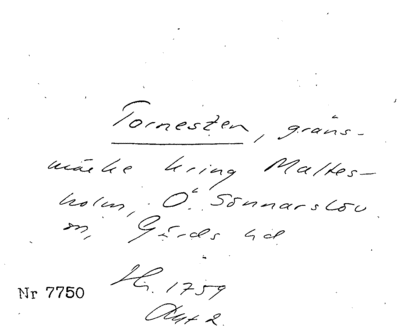 Tornesten, gräns-
märke kring Maltes-
holm, Ö. Sönnarslöv
sn, Gärds hd
Nr 7750
1759
Akt 2